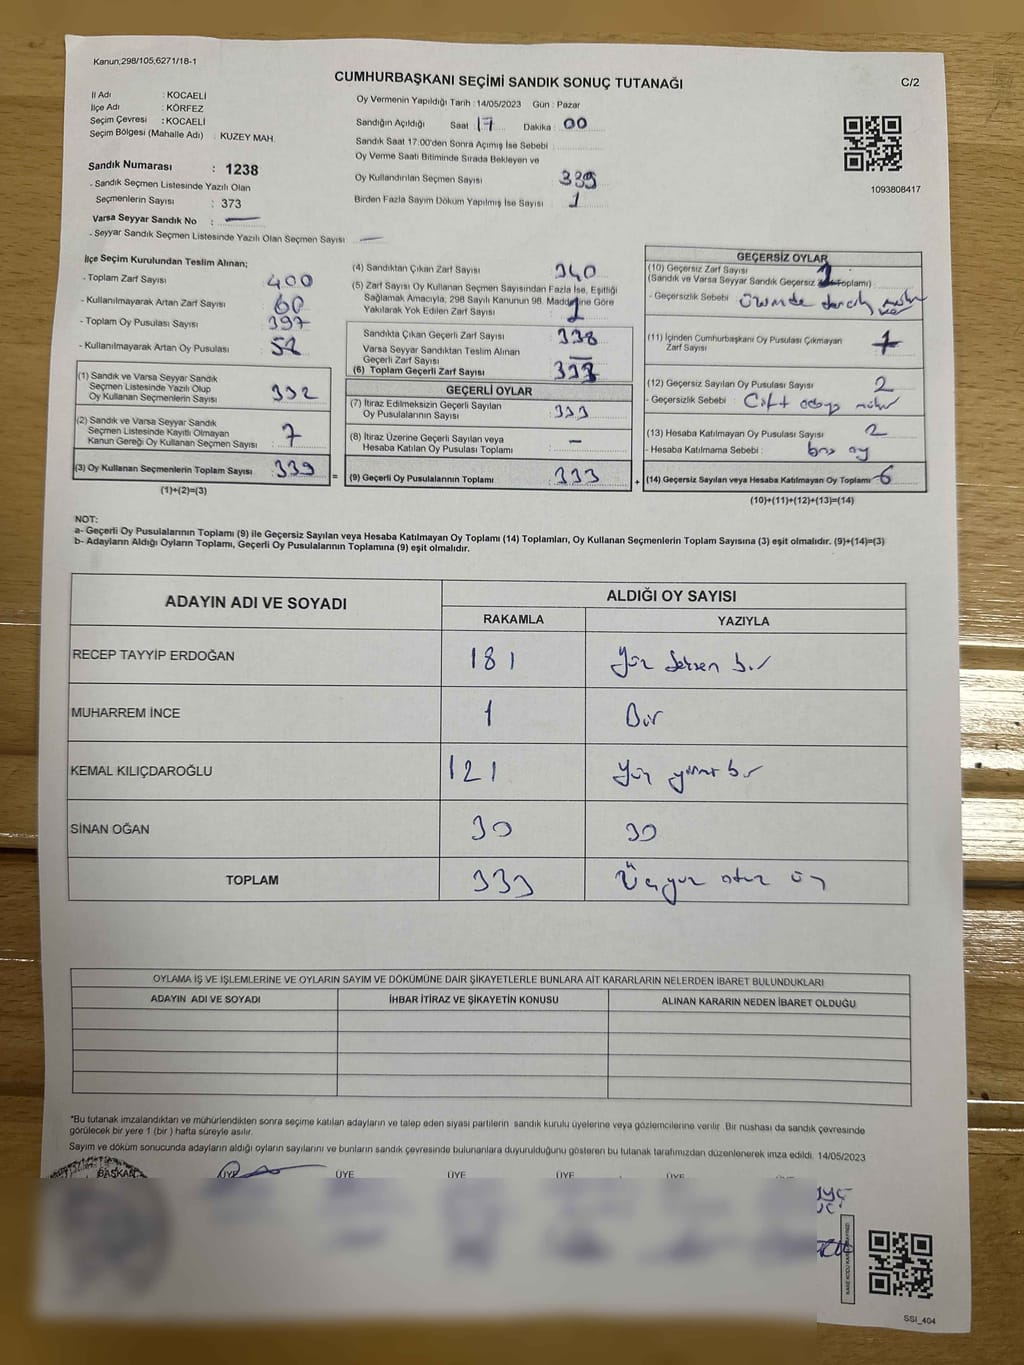 Kanun;298/105,6271/18-1
CUMHURBAŞKANI SEÇİMİ SANDIK SONUÇ TUTANAĞI
C/2
İl Adı : KOCAELİ
İlçe Adı : KÖRFEZ
Seçim Çevresi : KOCAELİ
Seçim Bölgesi (Mahalle Adı) : KUZEY MAH.
Sandık Numarası : 1238
- Sandık Seçmen Listesinde Yazılı Olan
Seçmenlerin Sayısı : 373
Varsa Seyyar Sandık No : —
- Seyyar Sandık Seçmen Listesinde Yazılı Olan Seçmen Sayısı : —
Oy Vermenin Yapıldığı Tarih : 14/05/2023 Gün : Pazar
Sandığın Açıldığı Saat : 17 Dakika : 00
Sandık Saat 17:00'den Sonra Açımış İse Sebebi
Oy Verme Saati Bitiminde Sırada Bekleyen ve
Oy Kullandırılan Seçmen Sayısı 339
Birden Fazla Sayım Döküm Yapılmış İse Sayısı 1
1093808417
İlçe Seçim Kurulundan Teslim Alınan;
- Toplam Zarf Sayısı : 400
- Kullanılmayarak Artan Zarf Sayısı : 60
- Toplam Oy Pusulası Sayısı : 397
- Kullanılmayarak Artan Oy Pusulası :
(1) Sandık ve Varsa Seyyar Sandık
Seçmen Listesinde Yazılı Olup
Oy Kullanan Seçmenlerin Sayısı : 332
(2) Sandık ve Varsa Seyyar Sandık
Seçmen Listesinde Kayıtlı Olmayan
Kanun Gereği Oy Kullanan Seçmen Sayısı : 7
(3) Oy Kullanan Seçmenlerin Toplam Sayısı : 339
(1)+(2)=(3)
=
(4) Sandıktan Çıkan Zarf Sayısı 340
(5) Zarf Sayısı Oy Kullanan Seçmen Sayısından Fazla İse, Eşitliği
Sağlamak Amacıyla; 298 Sayılı Kanunun 98. Maddesine Göre
Yakılarak Yok Edilen Zarf Sayısı : 1
Sandıkta Çıkan Geçerli Zarf Sayısı : 338
Varsa Seyyar Sandıktan Teslim Alınan
Geçerli Zarf Sayısı : —
(6) Toplam Geçerli Zarf Sayısı :
GEÇERLİ OYLAR
(7) İtiraz Edilmeksizin Geçerli Sayılan
Oy Pusulalarının Sayısı : 333
(8) İtiraz Üzerine Geçerli Sayılan veya
Hesaba Katılan Oy Pusulası Toplamı : —
(9) Geçerli Oy Pusulalarının Toplamı : 333
+
GEÇERSİZ OYLAR
(10) Geçersiz Zarf Sayısı 1
(Sandık ve Varsa Seyyar Sandık Geçersiz Zarf Toplamı) :
- Geçersizlik Sebebi : Üzerinde
(11) İçinden Cumhurbaşkanı Oy Pusulası Çıkmayan
Zarf Sayısı : 1
(12) Geçersiz Sayılan Oy Pusulası Sayısı : 2
- Geçersizlik Sebebi : Çift adaya mühür
(13) Hesaba Katılmayan Oy Pusulası Sayısı : 2
- Hesaba Katılmama Sebebi : boş oy
(14) Geçersiz Sayılan veya Hesaba Katılmayan Oy Toplamı : 6
(10)+(11)+(12)+(13)=(14)
NOT:
a- Geçerli Oy Pusulalarının Toplamı (9) ile Geçersiz Sayılan veya Hesaba Katılmayan Oy Toplamı (14) Toplamları, Oy Kullanan Seçmenlerin Toplam Sayısına (3) eşit olmalıdır. (9)+(14)=(3)
b- Adayların Aldığı Oyların Toplamı, Geçerli Oy Pusulalarının Toplamına (9) eşit olmalıdır.
ADAYIN ADI VE SOYADI
ALDIĞI OY SAYISI
RAKAMLA YAZIYLA
RECEP TAYYİP ERDOĞAN 181 Yüz seksen bir
MUHARREM İNCE 1 Bir
KEMAL KILIÇDAROĞLU 121 Yüz yirmi bir
SİNAN OĞAN 30 30
TOPLAM 333 Üçyüz otuz üç
OYLAMA İŞ VE İŞLEMLERİNE VE OYLARIN SAYIM VE DÖKÜMÜNE DAİR ŞİKAYETLERLE BUNLARA AİT KARARLARIN NELERDEN İBARET BULUNDUKLARI
ADAYIN ADI VE SOYADI İHBAR İTİRAZ VE ŞİKAYETİN KONUSU ALINAN KARARIN NEDEN İBARET OLDUĞU
*Bu tutanak imzalandıktan ve mühürlendikten sonra seçime katılan adayların ve talep eden siyasi partilerin sandık kurulu üyelerine veya gözlemcilerine verilir. Bir nüshası da sandık çevresinde
görülecek bir yere 1 (bir ) hafta süreyle asılır.
Sayım ve döküm sonucunda adayların aldığı oyların sayılarını ve bunların sandık çevresinde bulunanlara duyurulduğunu gösteren bu tutanak tarafımızdan düzenlenerek imza edildi. 14/05/2023
BAŞKAN ÜYE ÜYE ÜYE ÜYE ÜYE ÜYE
SSI_404